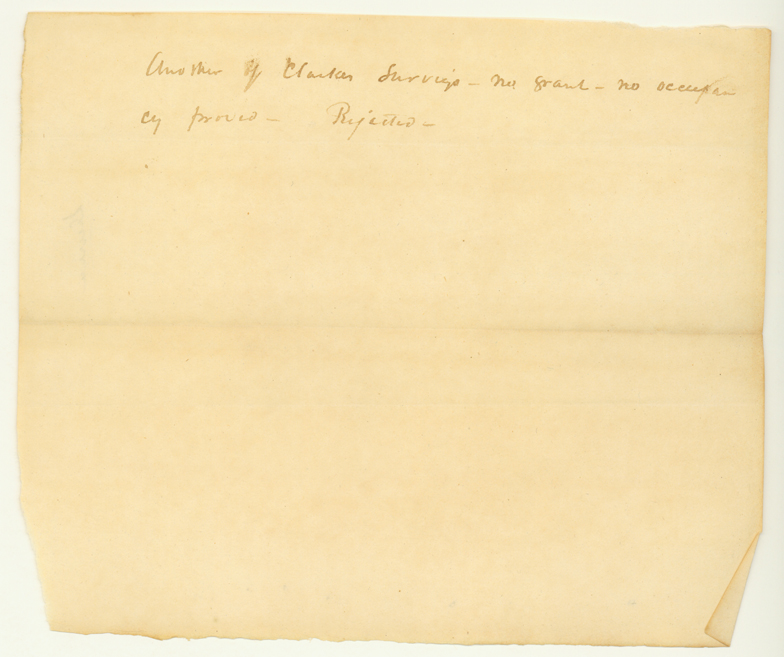 Another of Clarkes Surveys - no grant - no occupan
cy proved - Rejected -